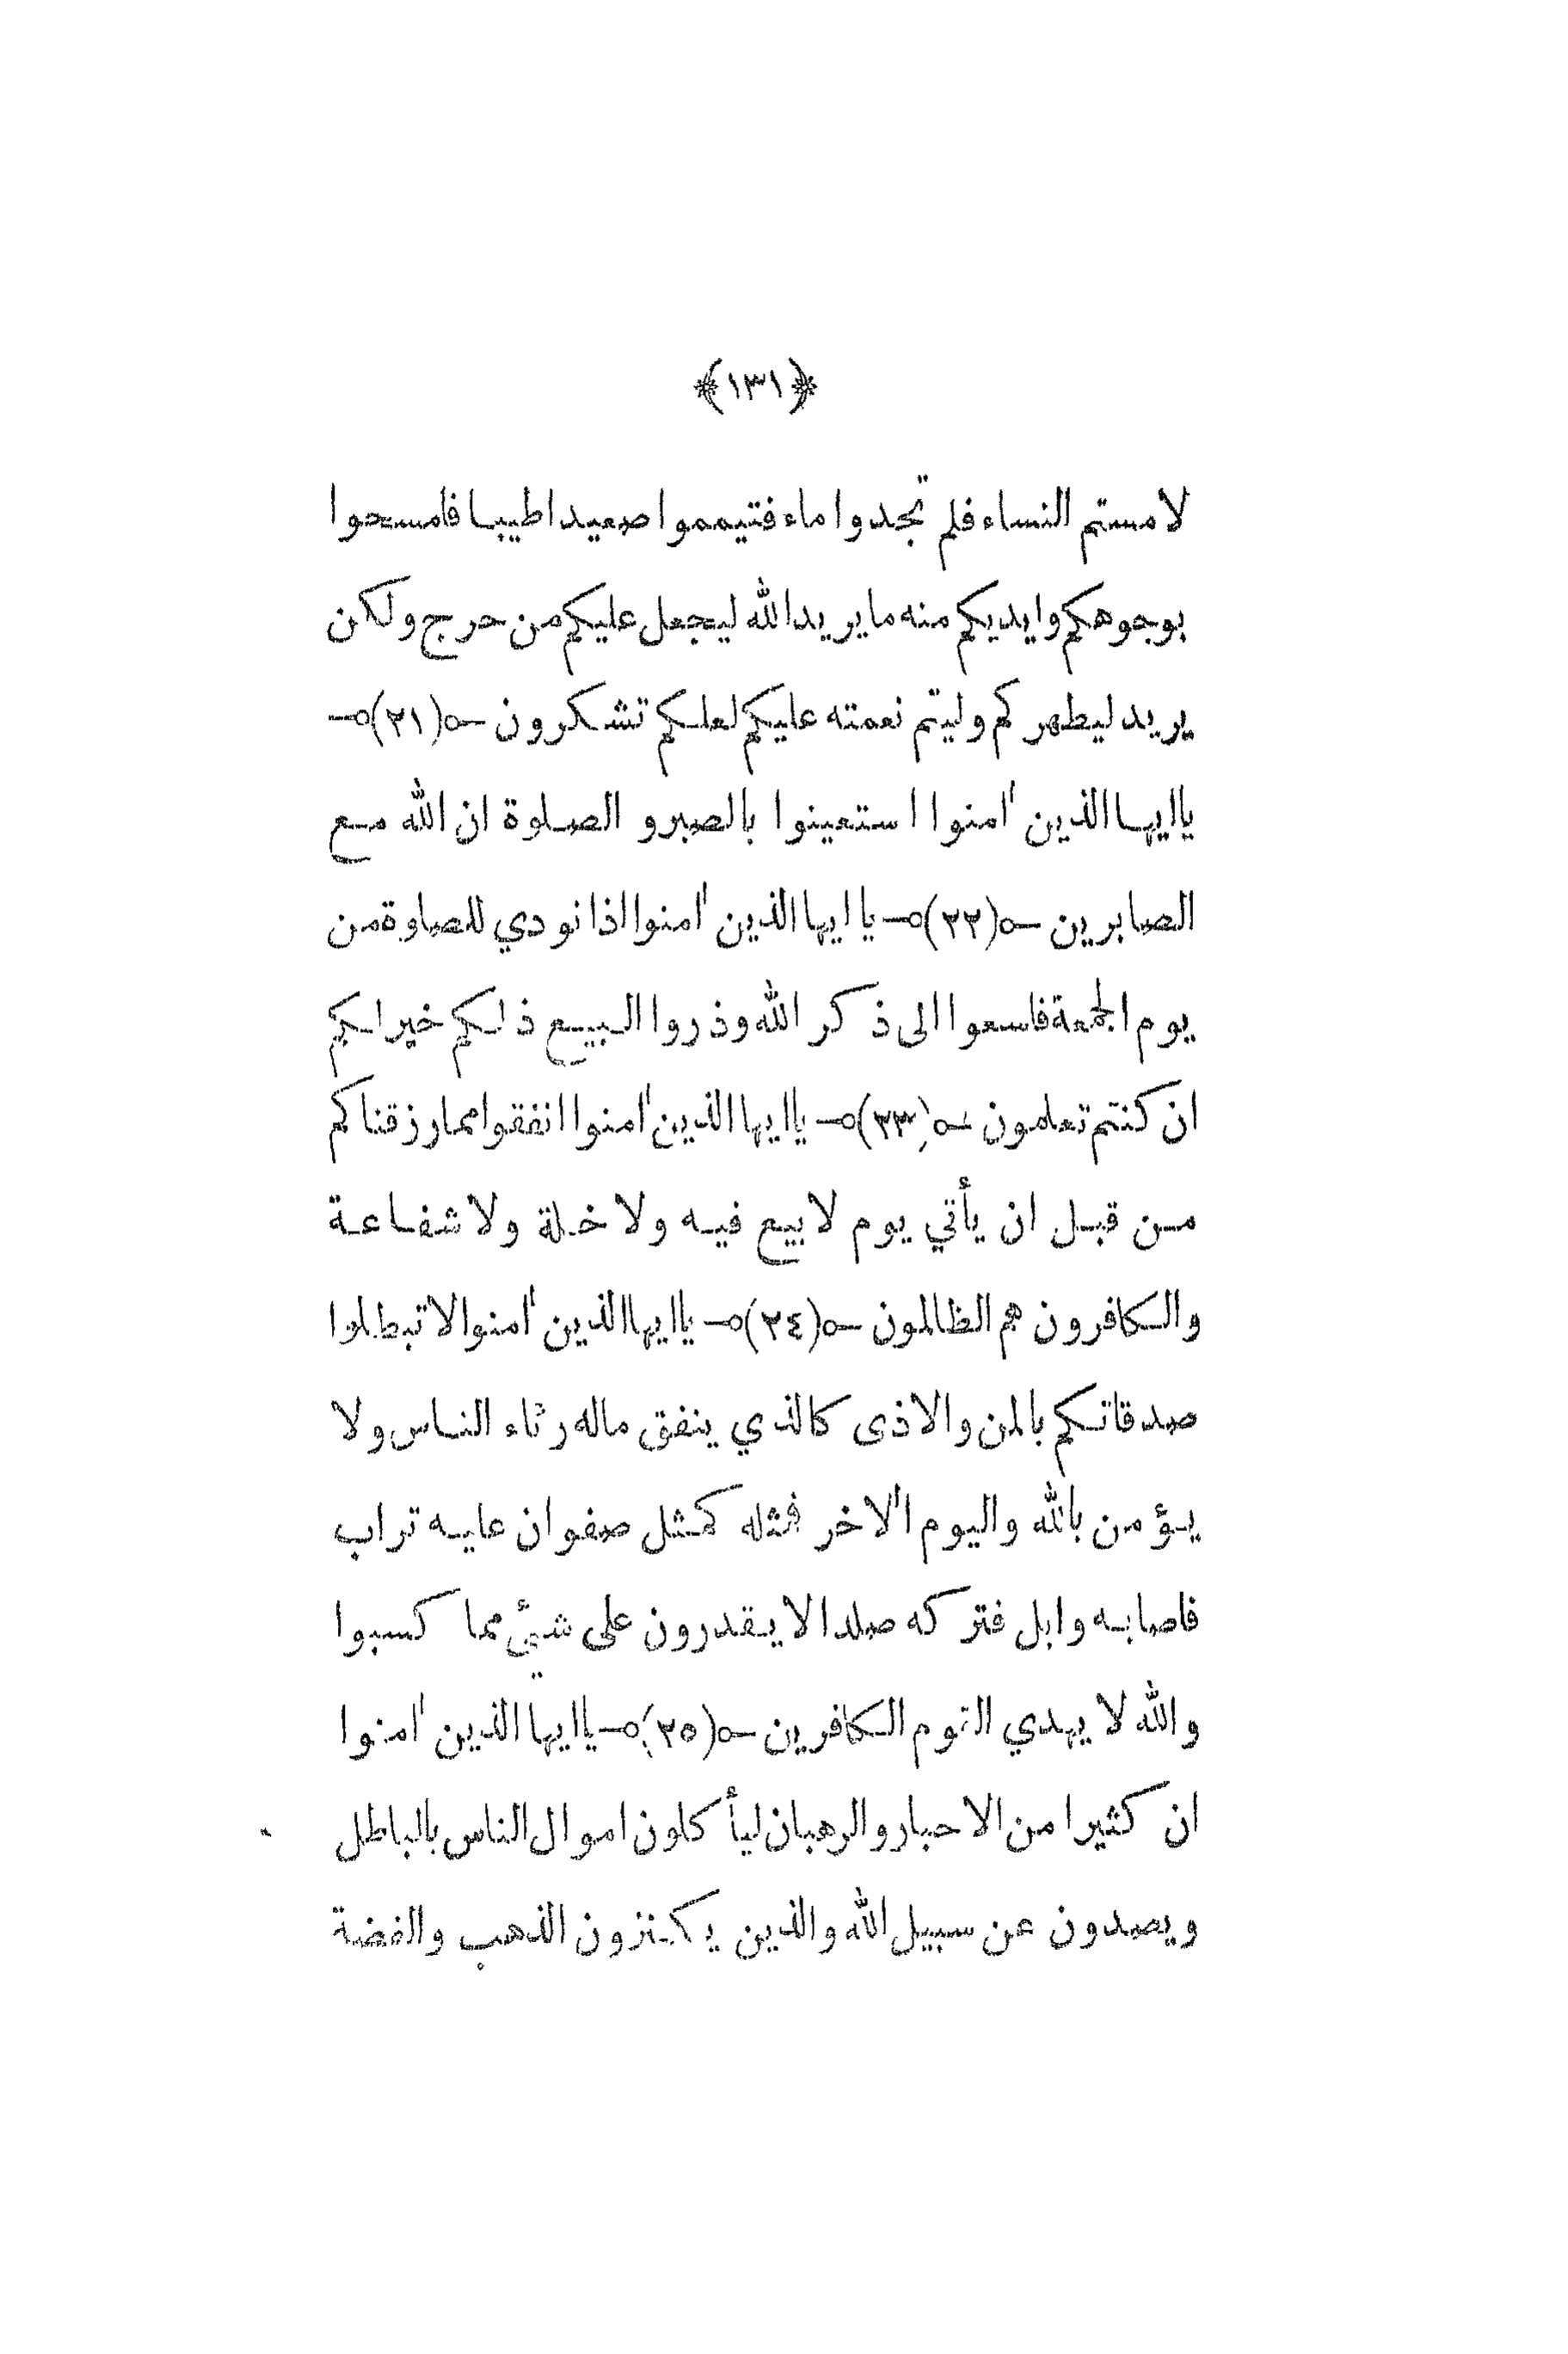 ﴿١٣١﴾
لامستم النساء فلم تجدوا ماء فتيمموا صعيدا طيبا فامسحوا
بوجوهكم وايديكم منه ما يريد الله ليجعل عليكم من حرج ولكن
يريد ليطهركم وليتم نعمته عليكم لعلكم تشكرون (٢١)
يا ايها الذين اٰمنوا استعينوا بالصبر و الصلوة ان الله مع
الصابرين (٢٢) يا ايها الذين اٰمنوا اذا نودي للصلوة من
يوم الجمعة فاسعوا الى ذكر الله وذروا البيع ذلكم خير لكم
ان كنتم تعلمون (٢٣) يا ايها الذين اٰمنوا انفقوا مما رزقناكم
من قبل ان يأتي يوم لا بيع فيه ولا خلة ولا شفاعة
والكافرون هم الظالمون (٢٤) يا ايها الذين اٰمنوا لا تبطلوا
صدقاتكم بالمن والاذى كالذي ينفق ماله رئاء الناس ولا
يؤمن بالله واليوم الاٰخر فمثله كمثل صفوان عليه تراب
فاصابه وابل فتركه صلدا لا يقدرون على شيئ مما كسبوا
والله لا يهدي القوم الكافرين (٢٥) يا ايها الذين اٰمنوا
ان كثيرا من الاحبار والرهبان ليأكلون اموال الناس بالباطل
ويصدون عن سبيل الله والذين يكنزون الذهب والفضة